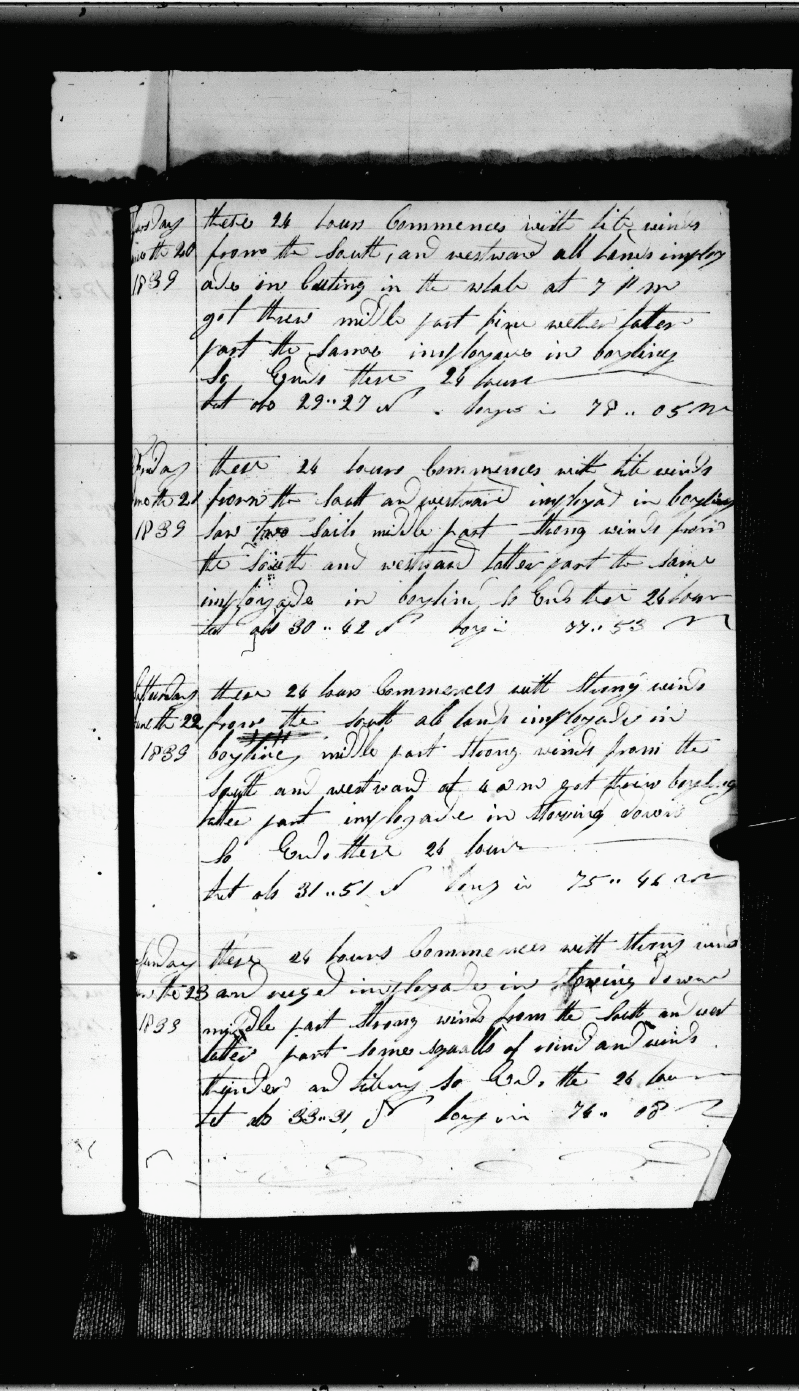 Thursday these 24 hours Commences with lite winds
June the 20 from the South, and westward all hands imploy
1839 ade in Cutting in the whale at 7 P m
got threw middle part fine wether latter
part the Same imployade in boyling
So Ends these 24 hours
lat obs 29..27 N longe in 78..05 m
Friday these 24 hours Commences with lite winds
June the 21 from the South and westward imployad in boyling
1839 saw two Sails middle part Strong winds from
the South and westward latter part the same
imployade in boyling So Ends these 24 hours
lat obs 30..42 N long in 77..53
Satturday these 24 hours Commences with Strong winds
June the 22 from the South all hands imployade in
1839 boyling middle part Strong winds from the
South and westward at 4 a m got threw boyling
latter part imployade in Stowing down
So Ends these 24 hours
lat obs 31..51 N long in 75..46
Sunday these 24 hours Commences with Strong winds
June the 23 and ruged imployade in Stowing down
1839 middle part Strong winds from the South and west
latter part some squalls of wind and winds
thunder and So Ends the 24 hours
lat obs 33..31 N long in 74..08